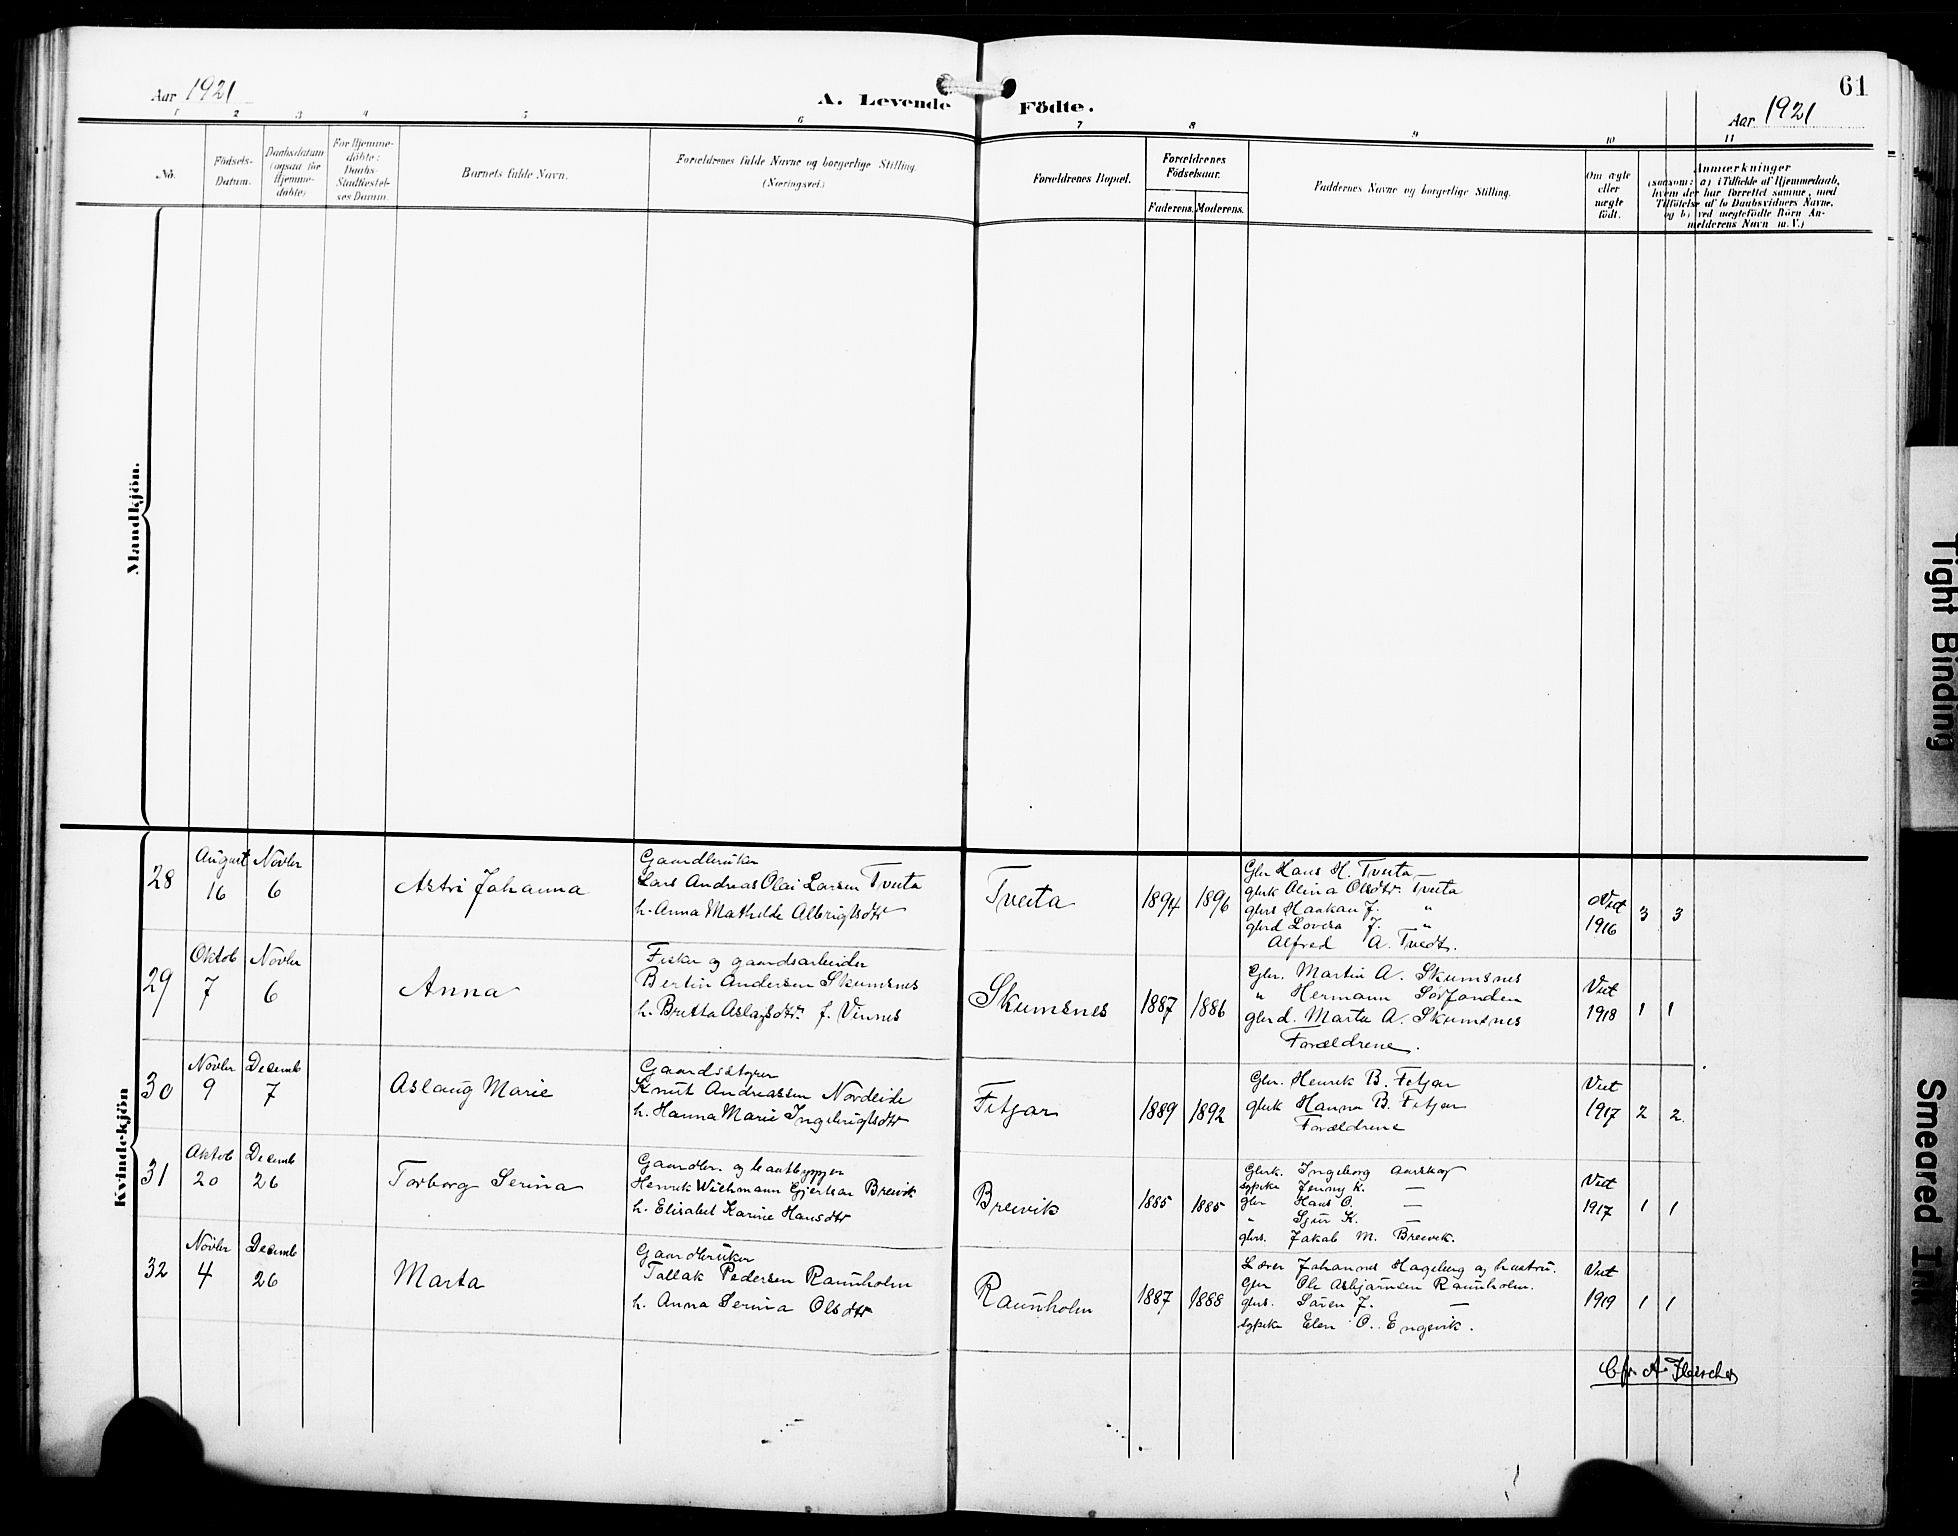 Aar 1921
A. Levende Födte.
61
Aar 1921
1 2 3 4 5 6 7 8 9 10 11
No.
Födsels-
Datum.
Daabsdatum
(ogsaa for
Hjemme-
döbte)
For Hjemme-
döbte:
Daabs-
Stadfæstel-
ses Datum.
Barnets fulde Navn.
Forældrenes fulde Navne og borgerlige Stilling.
(Næringsvei.)
Forældrenes Bopæl.
Forældrenes
Födselsaar.
Faderens. Moderens.
Faddernes Navne og borgerlige Stilling.
Om ægte
eller
uægte
födt.
Anmærkninger
(saasom: a) i Tilfælde af Hjemmedaab,
hvem der har forrettet samme, med
Tilföielse af to Daabsvidners Navne,
og b) ved uægtefödte Börn An-
melderens Navn m.V.)
Mandkjön.
Kvindekjön
28
August
16
Novbr
6
Astri Johanna
Gaardbruker
Lars Andreas Olai Larsen Tveita
h. Anna Mathilde Albrigtsdtr
Tveita
1894 1896
Gbr Hans H. Tveita
gbrk Alina Olsdtr. Tveita
gbrs Haakan J. "
gbrd Lovisa J. "
Alfred A. Tvedt.
Viet
1916
3 3
29
Oktob
7
Novbr
6
Anna
Fisker og gaardsarbeider
Bertin Andersen Skumsnes
h. Britta Aslagsdtr. f. Vinnes
Skumsnes
1887 1886
Gbr. Martin A. Skumsnes
" Hermann Sörfonden
gbrd. Marta A. Skumsnes
Forældrene.
Viet
1918
1 1
30
Novbr
9
Decemb
7
Aslaug Marie
Gaardstyrer
Knut Andreassen Nordeide
h. Hanna Marie Ingebrigtsdtr
Fitjar
1889 1892
Gbr. Henrik B. Fitjar
gbrk Hanna B. Fitjar
Forældrene
Viet
1917
2 2
31
Oktob
20
Decemb
26
Torborg Serina
Gaardbr. og baatbygger
Henrik Wichmann Gjertsen Breivik
h. Elisabet Karine Hansdtr
Breivik
1885 1885
Gbrk. Ingeborg Aarskog
Jenny K. —
gbr Hans O. —
" Sjur K. —
gbrs. Jakob M. Breivik.
Viet
1917
1 1
32
Novbr
4
Decemb
26
Marta
Gaardbruker
Tallak Pedersen Raunholm
h. Anna Serina Olsdtr
Raunholm
1887 1888
Lærer Johannes Hageberg og hustru.
Gbr Ole Asbjörnsen Raunholm.
gbrs. Sören J. —
Elen O. Engevik.
Viet
1919
1 1
Cfr A.
Tight Binding
Smeared Ink